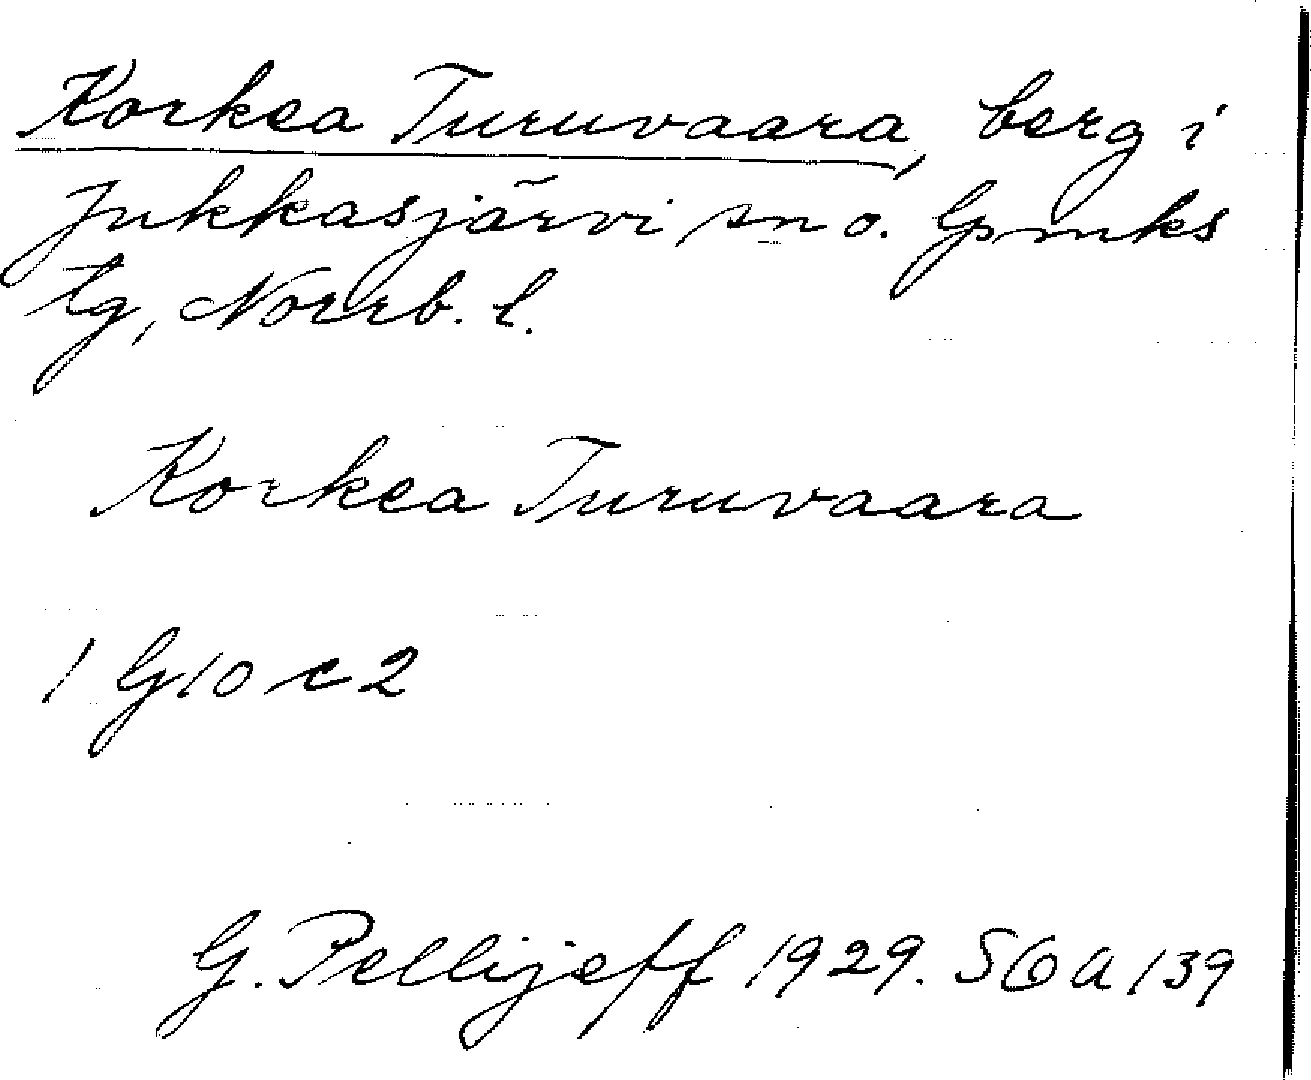 Korkea Turuvaara, berg i
Jukkasjärvi sn o. Gmks
tg, Norrb. l.
Korkea Turuvaara
1 G10 c2
G. Pellijeff 1929. SOA 139